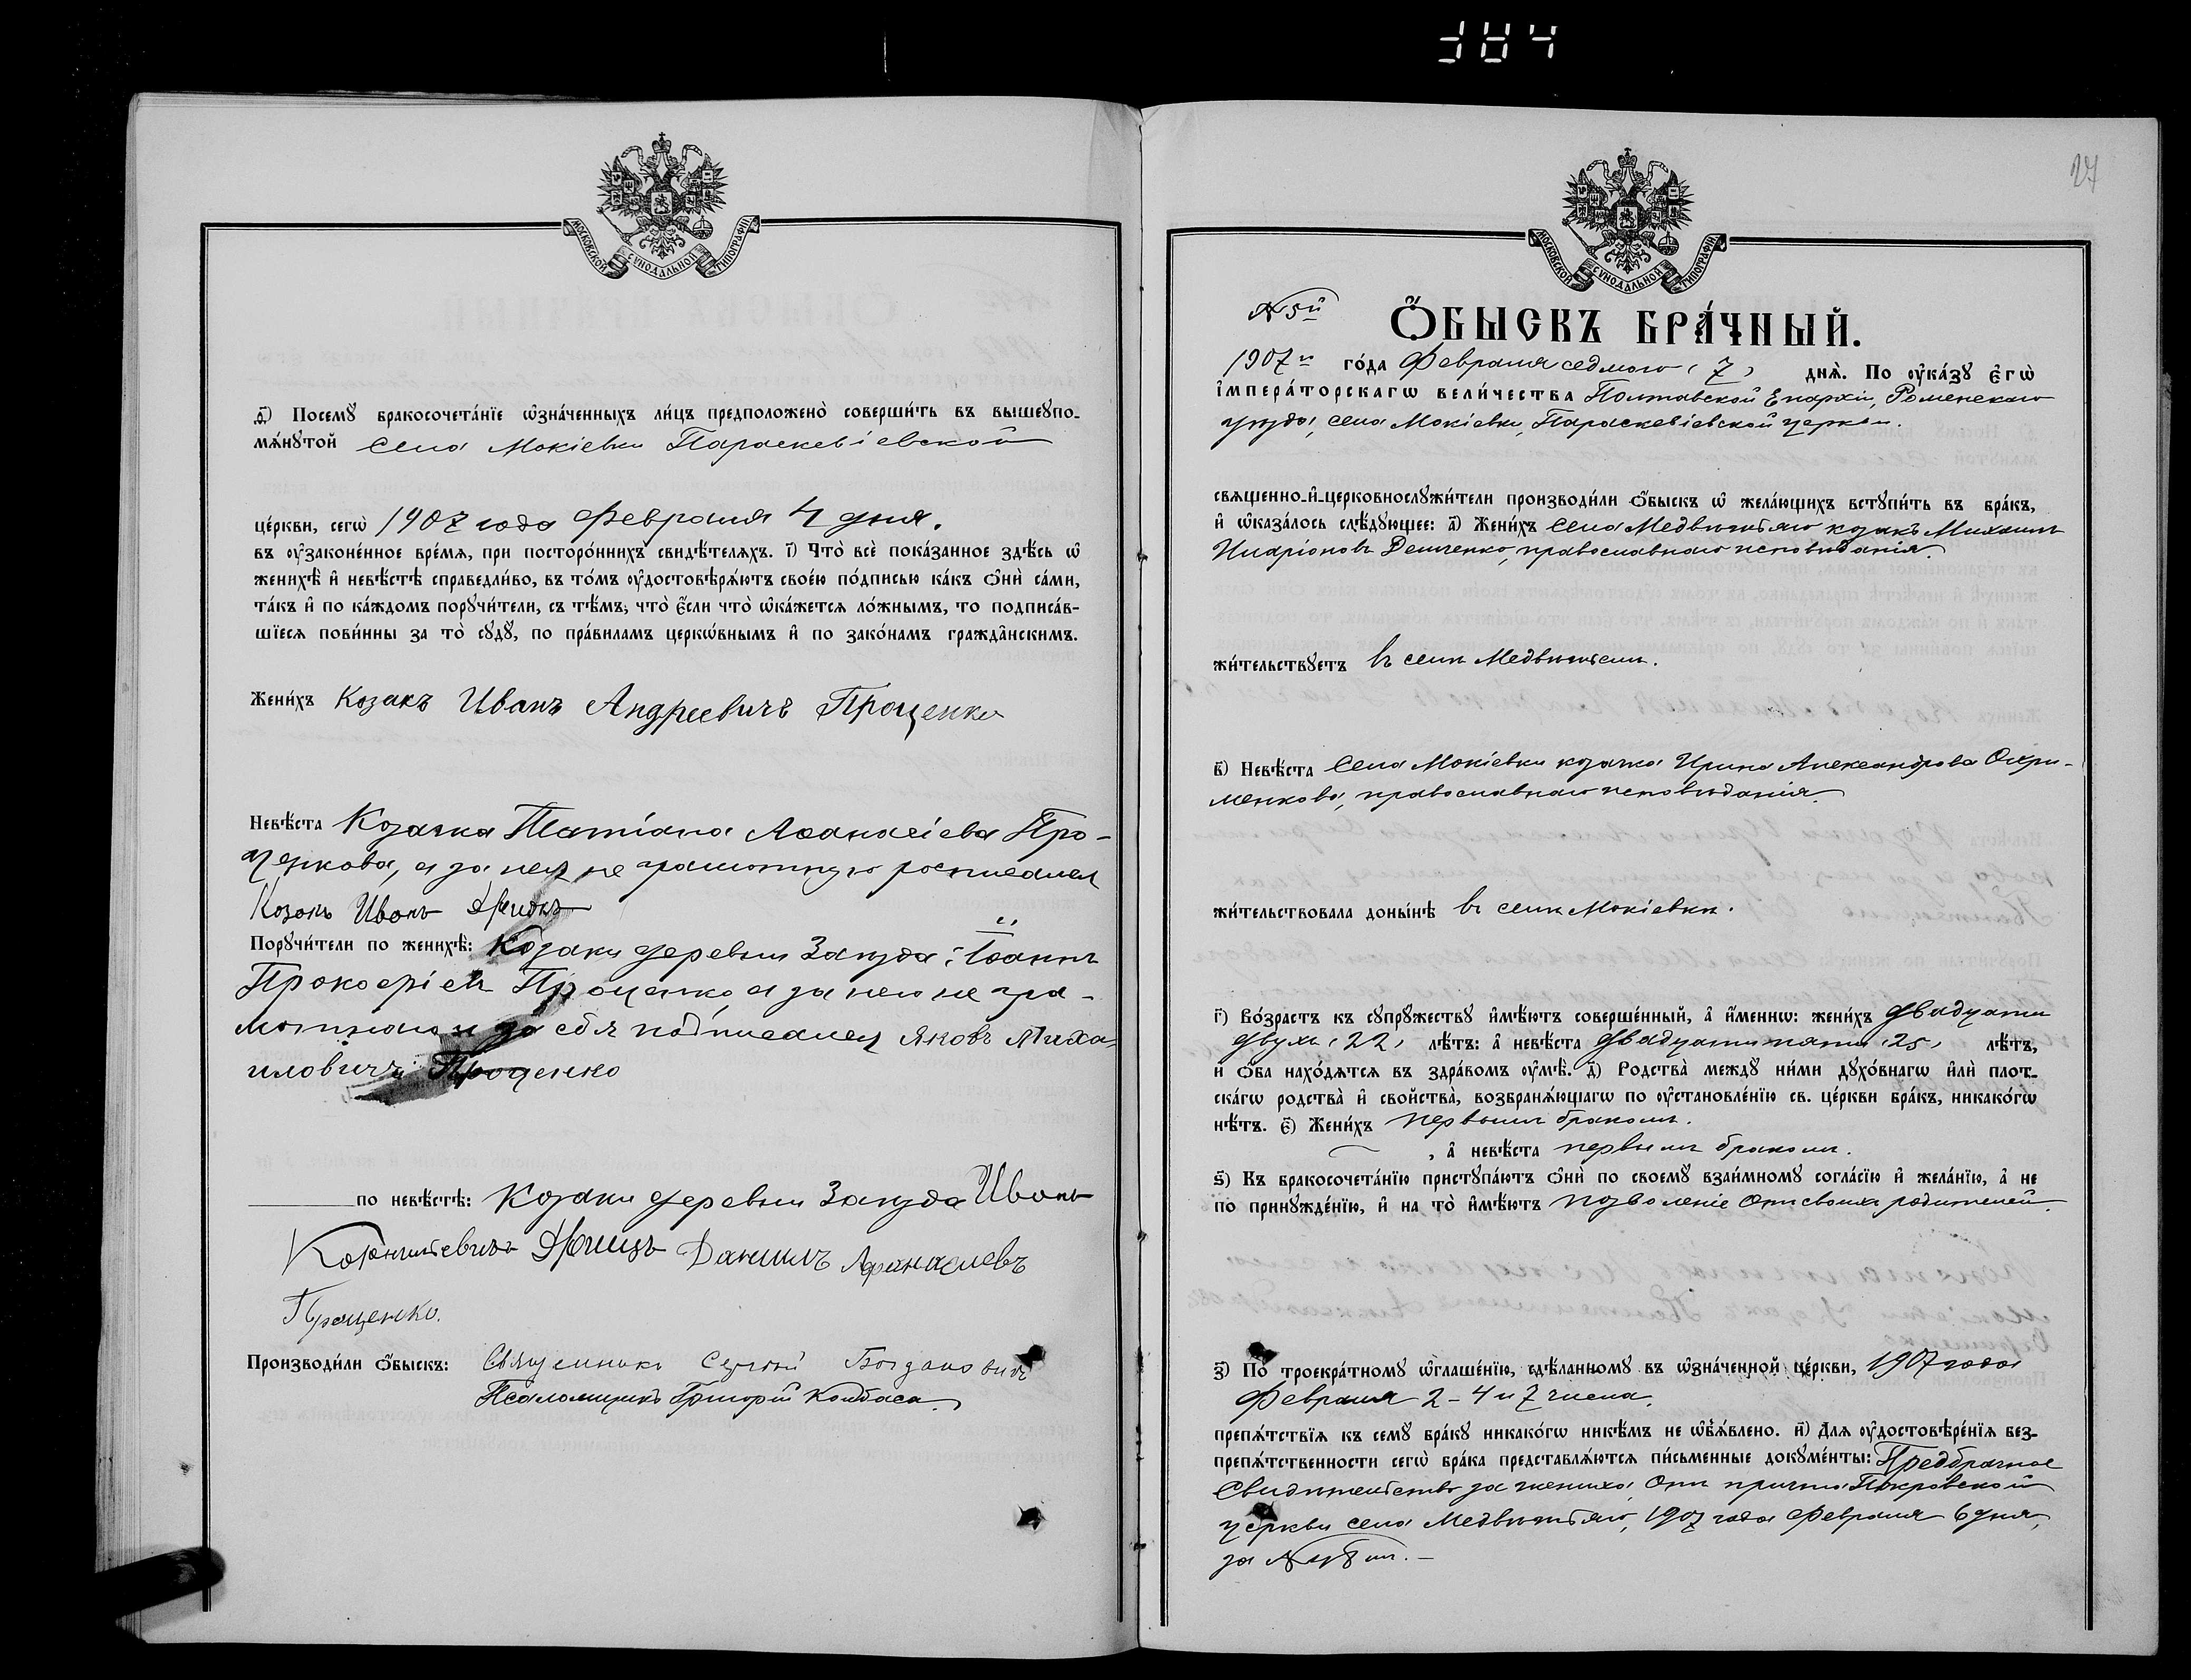 384
МОСКОВСКОЙ СУНОДАЛЬНОЙ ТИПОГРАФІИ
д҃) Посемꙋ̀ бракосочета́нїе ѡ҆зна́ченныхъ ли́цъ предположено̀ соверши́ть въ вышеꙋпо-
мѧ́нꙋтой села Мокіевки Параскевіевской
це́ркви, сегѡ̀ 1907 года Февраля 4 дня.
въ ᲂу҆законе́нное вре́мѧ, при посторо́ннихъ свидѣ́телѧхъ. і҃) Что̀ всѐ пока́занное здѣ́сь ѡ҆
женихѣ̀ и҆ невѣ́стѣ справедли́во, въ то́мъ ᲂу҆достовѣрѧ́ютъ свое́ю по́дписью ка́къ ѻ҆нѝ са́ми,
та́къ и҆ по ка́ждомъ порꙋчи́тели, съ тѣ́мъ, что̀ є҆́сли что̀ ѡ҆ка́жетсѧ ло́жнымъ, то подписа́в-
шїесѧ пови́нны за то̀ сꙋдꙋ̀, по пра́виламъ церкѡ́внымъ и҆ по зако́намъ гражда̂нскимъ.
Жени́хъ Козакъ Иванъ Андреевичъ Проценко
Невѣ́ста Козачка Татіана Аѳанасіева Про-
ценкова, а за нея не грамотную росписался
Козакъ Иванъ
Порꙋчи́тели по женихѣ̀: Козаки деревни Заруда: Іоаннъ
Прокофіевъ Проценко, а за него не гра-
мотнаго и за себя подписался Яковъ Миха-
иловичъ Проценко
по невѣ́стѣ: Козаки деревни Заруда Иванъ
Даниилъ Афанасиевъ
Проценко.
Производи́ли ѻ҆́быскъ: Священникъ Сергій Богдановичъ
Псаломщикъ Григорій Колбаса.
27
МОСКОВСКОЙ СУНОДАЛЬНОЙ ТИПОГРАФІИ
№ 5й
Ѻ҆́БЫСКЪ БРА́ЧНЫЙ.
1907го го́да Февраля седмого (7) днѧ̀. По ᲂу҆ка́зꙋ є҆гѡ̀
і҆мпера́торскагѡ вели́чества Полтавской Епархіи, Роменскаго
уѣзда, села Мокіевки, Параскевіевской церкви.
свѧщенно-и҆-церковнослꙋжи́тели производи́ли ѻ҆́быскъ ѡ҆ жела́ющихъ встꙋпи́ть въ бра́къ,
и҆ ѡ҆каза́лось слѣ́дꙋющее: а҃) Жени́хъ села Медвѣжьяго козакъ Михаилъ
Иларіоновъ Демченко, православнаго исповѣданія.
жи́тельствꙋетъ въ селѣ Медвѣжьемъ.
в҃) Невѣ́ста Села Мокіевки козачка Ирина Александрова Охри-
менкова, православнаго исповѣданія.
жи́тельствовала донынѣ въ селѣ Мокіевкѣ.
г҃) Во́зрастъ къ сꙋпрꙋ́жествꙋ и҆мѣ́ютъ соверше́нный, а҆ и҆́меннѡ: жени́хъ двадцати
двухъ (22) лѣ́тъ: а҆ невѣ́ста двадцати пяти (25) лѣ́тъ,
и҆ ѻ҆́ба нахо́дѧтсѧ въ здра́вомъ ᲂу҆мѣ̀. д҃) Родства̀ междꙋ̀ ни́ми дꙋхо́внагѡ и҆лѝ плот-
ска́гѡ родства̀ и҆ свойства̀, возбранѧ́ющагѡ по ᲂу҆становле́нїю св. це́ркви бра́къ, никако́гѡ
нѣ́тъ. є҃) Жени́хъ первымъ бракомъ.
, а҆ невѣ́ста первымъ бракомъ.
ѕ҃) Къ бракосочета́нїю пристꙋпа́ютъ ѻ҆нѝ по своемꙋ̀ взаи́мномꙋ согла́сїю и҆ жела́нїю, а҆ не
по принꙋжде́нїю, и҆ на то̀ и҆мѣ́ютъ позволеніе отъ своихъ родителей.
з҃) По троекра́тномꙋ ѡ҆глаше́нїю, сдѣ́ланномꙋ въ ѡ҆зна́ченной це́ркви, 1907 года
Февраля 2 - 4 и 7 числа.
препѧ́тствїѧ къ семꙋ̀ бра́кꙋ никако́гѡ никѣ́мъ не ѡ҆б̾ѧ́влено. и҃) Длѧ ᲂу҆достовѣре́нїѧ без-
препѧ́тственности сегѡ̀ бра́ка представлѧ́ютсѧ пи́сьменные докꙋме́нты: Предбрачное
Свидѣтельство за жениха, отъ причта Покровской
церкви села Медвѣжьяго, 1907 года Февраля 6 дня,
за №